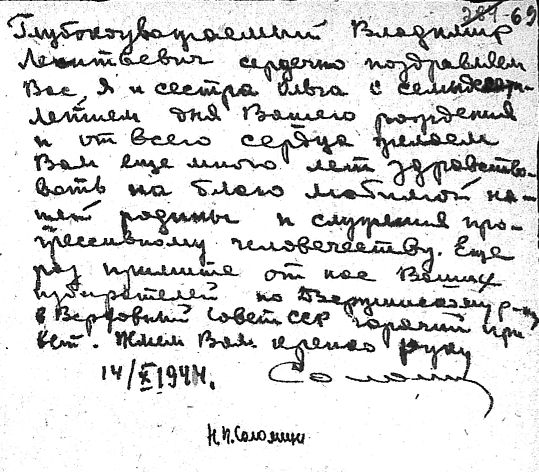 284 69
Глубокоуважаемый Владимир
Леонтьевич сердечно поздравляем
Вас, я и сестра Ольга с семидесяти-
летием дня Вашего рождения
и от всего сердца желаем
Вам еще много лет здравство-
вать на благо любимой на-
шей родины и служения про-
грессивному человечеству. Еще
раз примите от нас Ваших
избирателей по Дзержинскому р-ну
в Верховный Совет СССР горячий при-
вет. Жмем Вам крепко руку
14/X 1944.
Н.П.Соломин